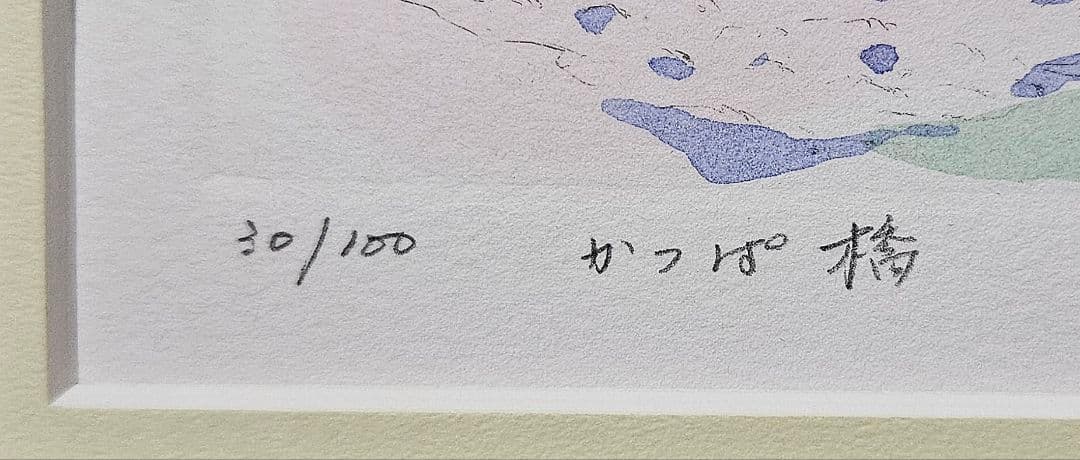 30/100 かっぱ橋